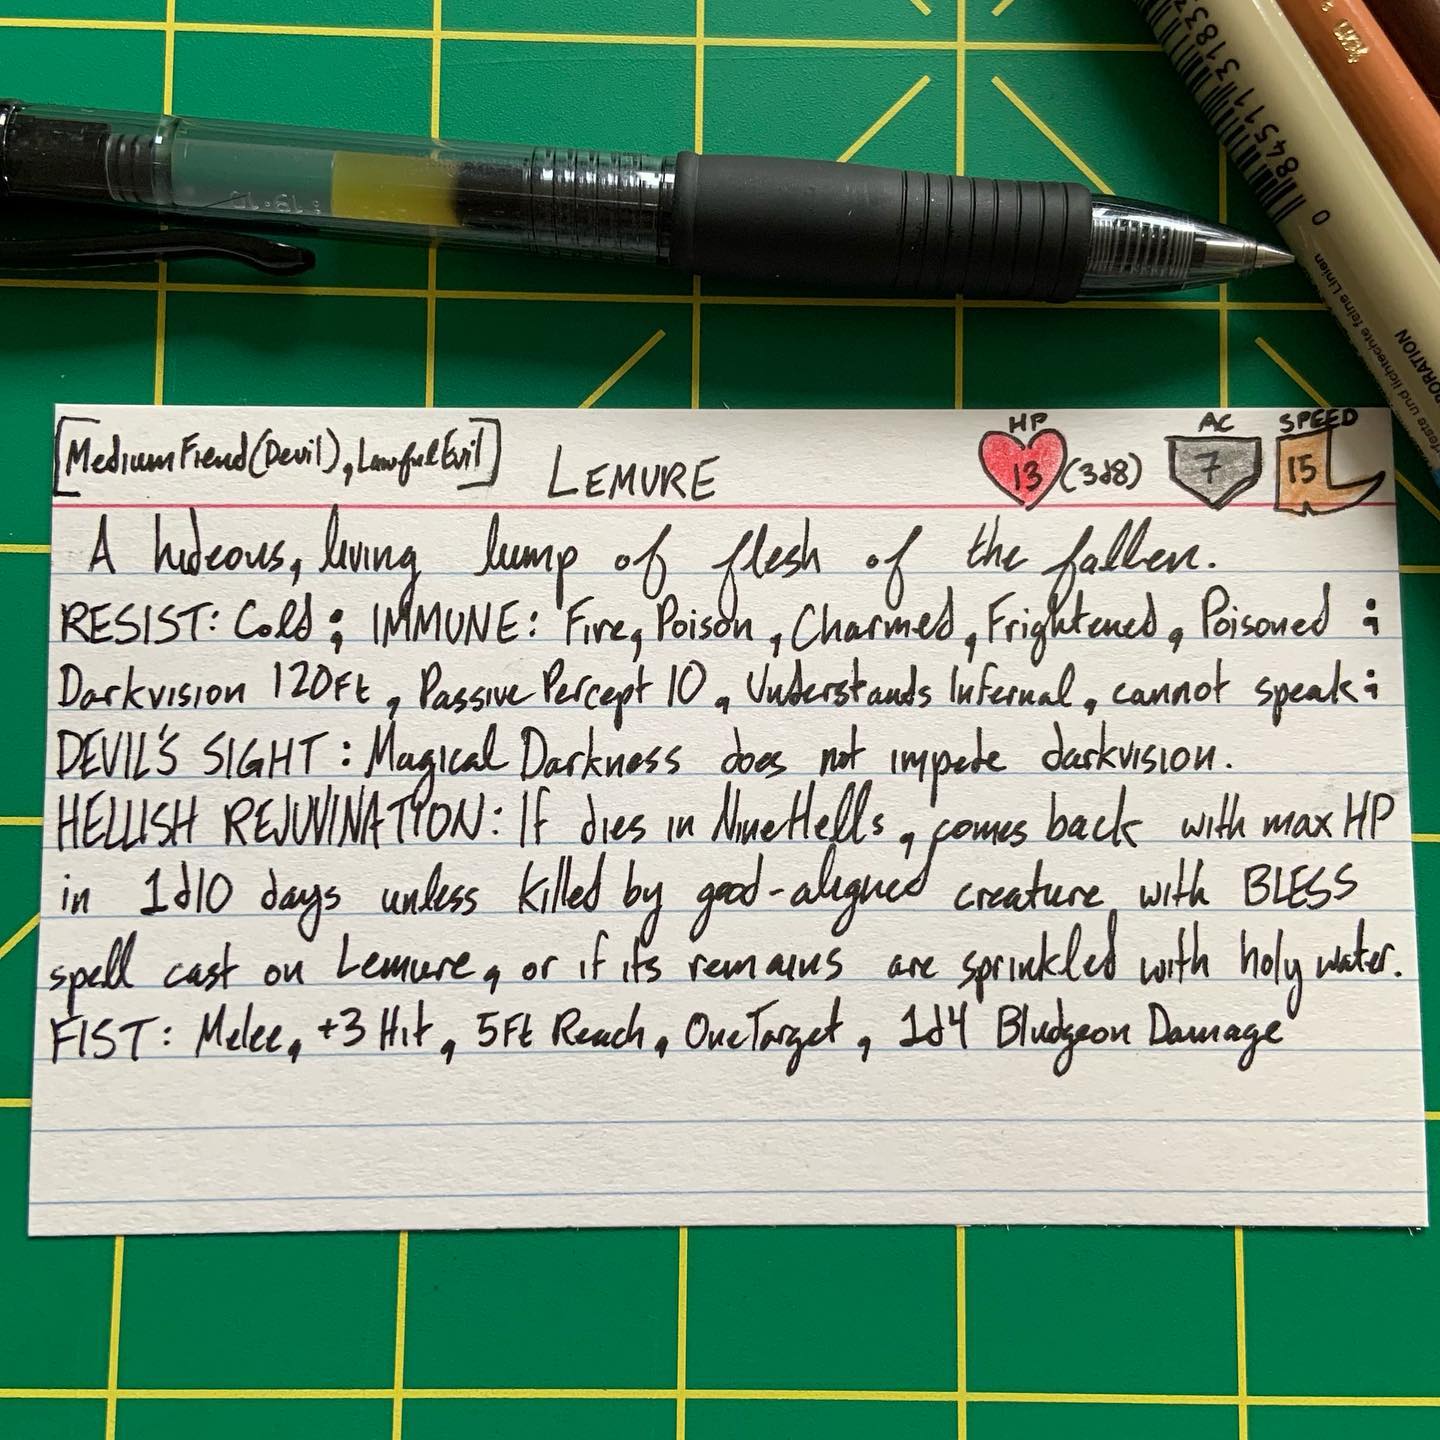 0 84511 3183
feste und lichtechte feine Linien
ORATION
[Medium Fiend (Devil), Lawful Evil]
LEMURE
HP
13 (3d8)
AC
7
SPEED
15
A hideous, living lump of flesh of the fallen.
RESIST: Cold; IMMUNE: Fire, Poison, Charmed, Frightened, Poisoned;
Darkvision 120Ft, Passive Percept 10, Understands Infernal, cannot speak;
DEVIL'S SIGHT: Magical Darkness does not impede darkvision.
HELLISH REJUVINATION: If dies in Nine Hells, comes back with max HP
in 1d10 days unless killed by good-aligned creature with BLESS
spell cast on Lemure, or if its remains are sprinkled with holy water.
FIST: Melee, +3 Hit, 5Ft Reach, One Target, 1d4 Bludgeon Damage